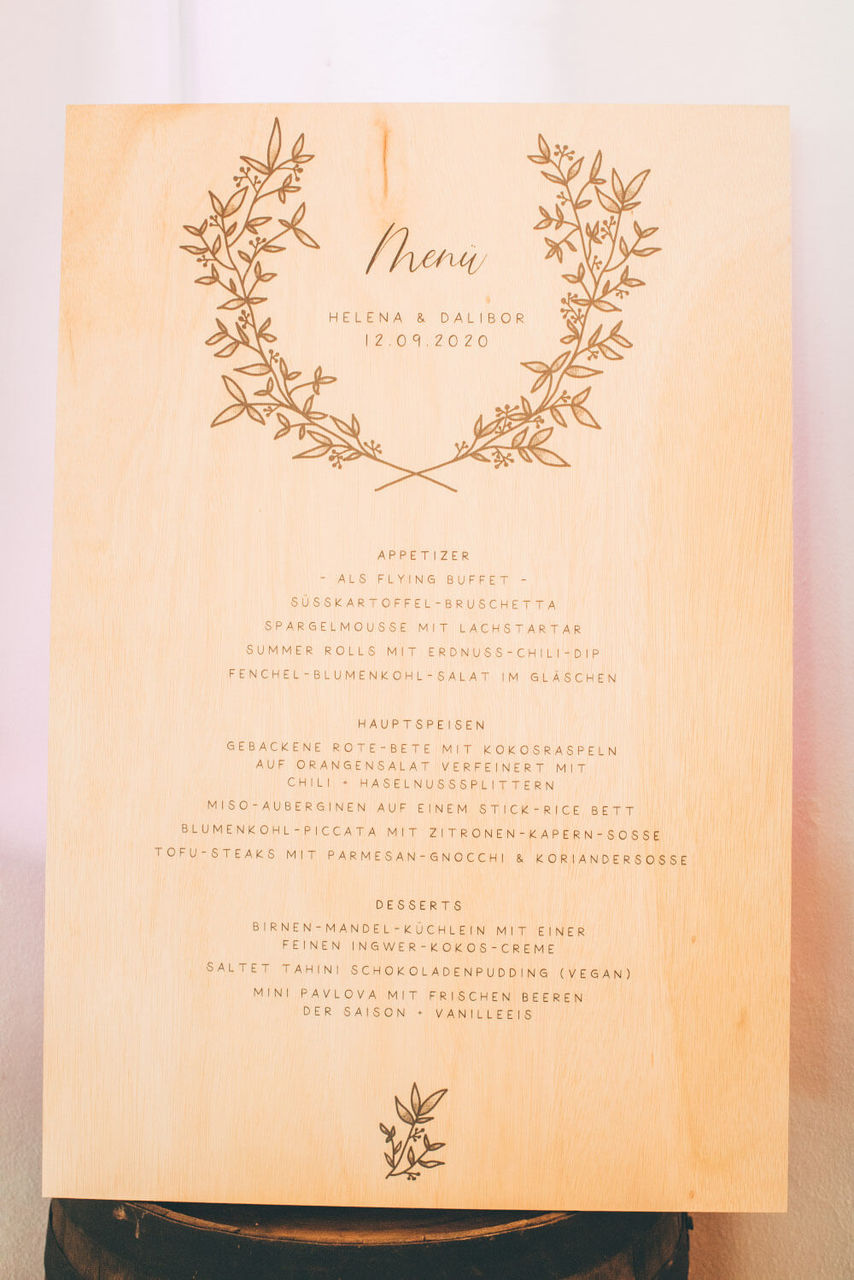 Menü
HELENA & DALIBOR
12.09.2020
APPETIZER
- ALS FLYING BUFFET -
SÜSSKARTOFFEL-BRUSCHETTA
SPARGELMOUSSE MIT LACHSTARTAR
SUMMER ROLLS MIT ERDNUSS-CHILI-DIP
FENCHEL-BLUMENKOHL-SALAT IM GLÄSCHEN
HAUPTSPEISEN
GEBACKENE ROTE-BETE MIT KOKOSRASPELN
AUF ORANGENSALAT VERFEINERT MIT
CHILI + HASELNUSSSPLITTERN
MISO-AUBERGINEN AUF EINEM STICK-RICE BETT
BLUMENKOHL-PICCATA MIT ZITRONEN-KAPERN-SOSSE
TOFU-STEAKS MIT PARMESAN-GNOCCHI & KORIANDERSOSSE
DESSERTS
BIRNEN-MANDEL-KÜCHLEIN MIT EINER
FEINEN INGWER-KOKOS-CREME
SALTET TAHINI SCHOKOLADENPUDDING (VEGAN)
MINI PAVLOVA MIT FRISCHEN BEEREN
DER SAISON + VANILLEEIS